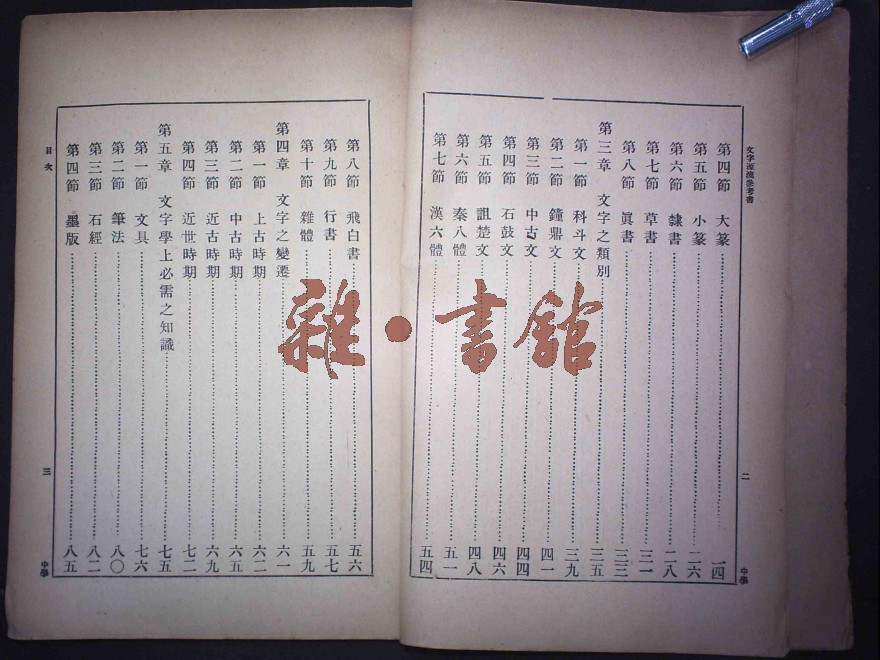 文字源流參考書 二 中學
第四節 大篆……一四
第五節 小篆……二六
第六節 隸書……二八
第七節 草書……三一
第八節 眞書……三三
第三章 文字之類別……三五
第一節 科斗文……三九
第二節 鐘鼎文……四一
第三節 中古文……四四
第四節 石鼓文……四六
第五節 詛楚文……四八
第六節 秦八體……五一
第七節 漢六體……五四
第八節 飛白書……五六
第九節 行書……五七
第十節 雜體……五九
第四章 文字之變遷……六一
第一節 上古時期……六二
第二節 中古時期……六五
第三節 近古時期……六九
第四節 近世時期……七二
第五章 文字學上必需之知識……七五
第一節 文具……七六
第二節 筆法……八〇
第三節 石經……八二
第四節 墨版……八五
目次 三 中學
雜·書館